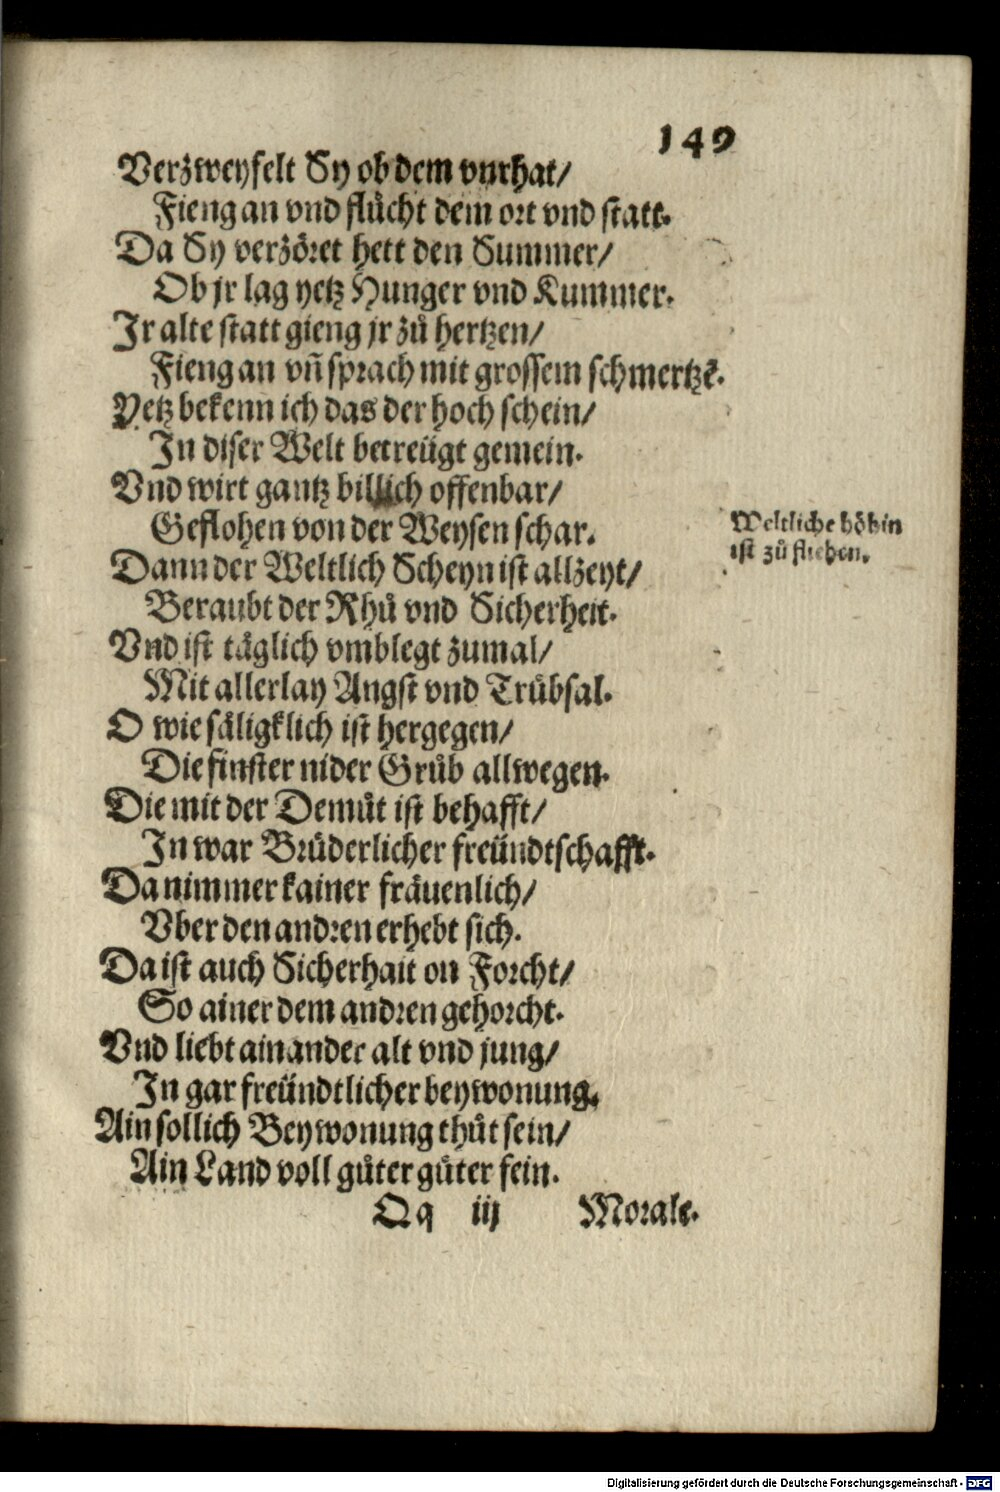 149
Verzweyfelt Sy ob dem vnrhat/
Fieng an vnd flůcht dem ort vnd statt.
Da Sy verzöret hett den Summer/
Ob jr lag yetz Hunger vnd Kummer.
Ir alte statt gieng jr zů hertzen/
Fieng an vñ sprach mit grossem schmertzẽ.
Yetz bekenn ich das der hoch schein/
In diser Welt betreügt gemein.
Vnd wirt gantz billich offenbar/
Geflohen von der Weysen schar.
Weltliche höhin
ist zů fliehen.
Dann der Weltlich Scheyn ist allzeyt/
Beraubt der Rhů vnd Sicherheit.
Vnd ist täglich vmblegt zumal/
Mit allerlay Angst vnd Trübsal.
O wie säligklich ist hergegen/
Die finster nider Grůb allwegen.
Die mit der Demůt ist behafft/
In war Brüderlicher freündtschafft.
Da nimmer kainer fräuenlich/
Vber den andren erhebt sich.
Da ist auch Sicherhait on Forcht/
So ainer dem andren gehorcht.
Vnd liebt ainander alt vnd jung/
In gar freündtlicher beywonung.
Ain sollich Beywonung thůt sein/
Ain Land voll gůter gůter fein.
Qq iij Morale.
Digitalisierung gefördert durch die Deutsche Forschungsgemeinschaft - DFG